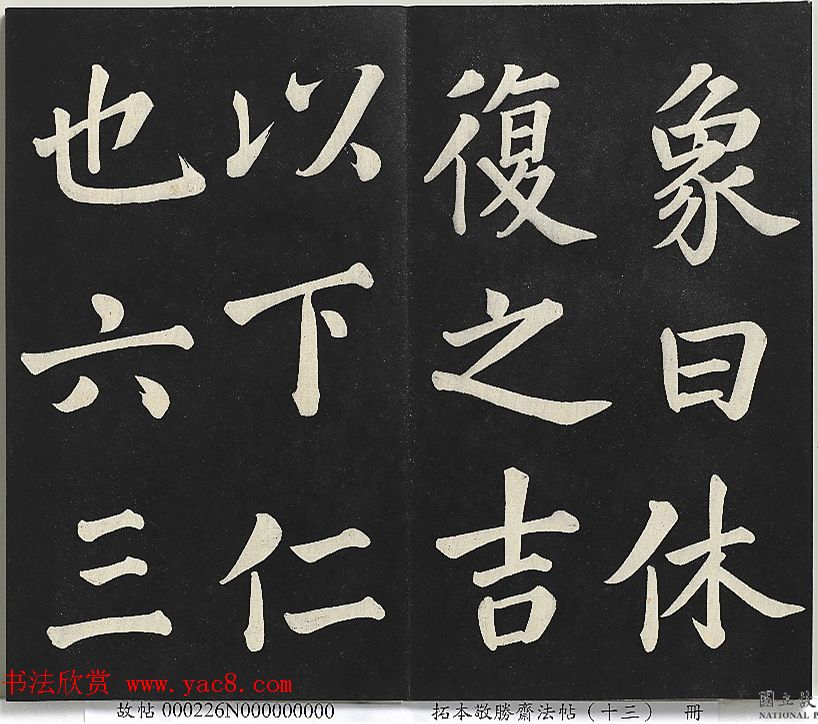 象曰休
復之吉
以下仁
也六三
书法欣赏 www.yac8.com
故帖 000226N000000000 拓本敬勝齋法帖（十三） 冊
國立故
NATIONAL P